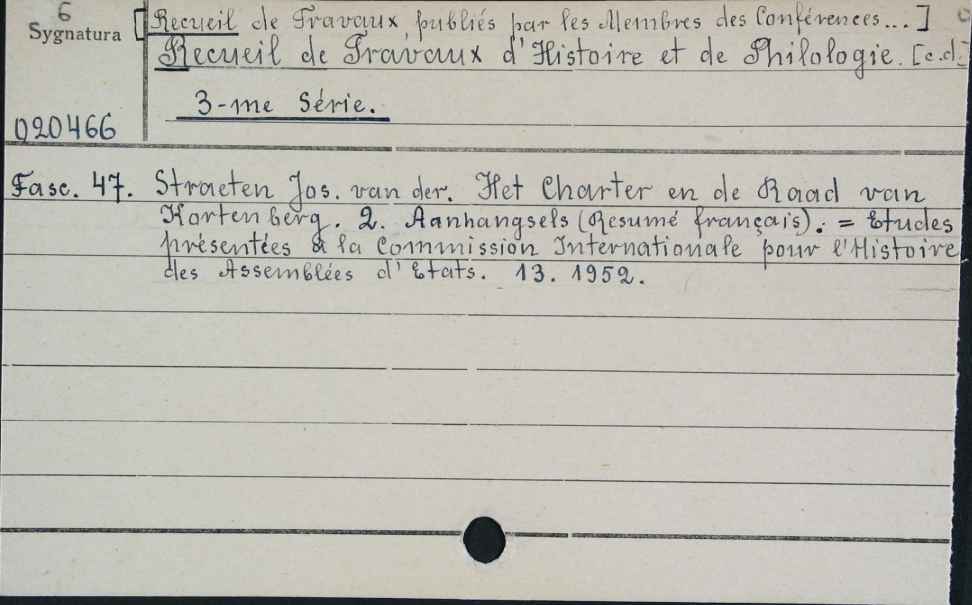 6
Sygnatura
[Recueil de Travaux publiés par les Membres des Conférences...]
Recueil de Travaux d'Histoire et de Philologie. [c.d.]
3-me Série.
020466
Fasc. 47. Straeten Jos. van der. Het Charter en de Raad van
Kortenberg. 2. Aanhangsels (Resumé français). = Etudes
présentées à la Commission Internationale pour l'Histoire
des Assemblées d'Etats. 13. 1952.